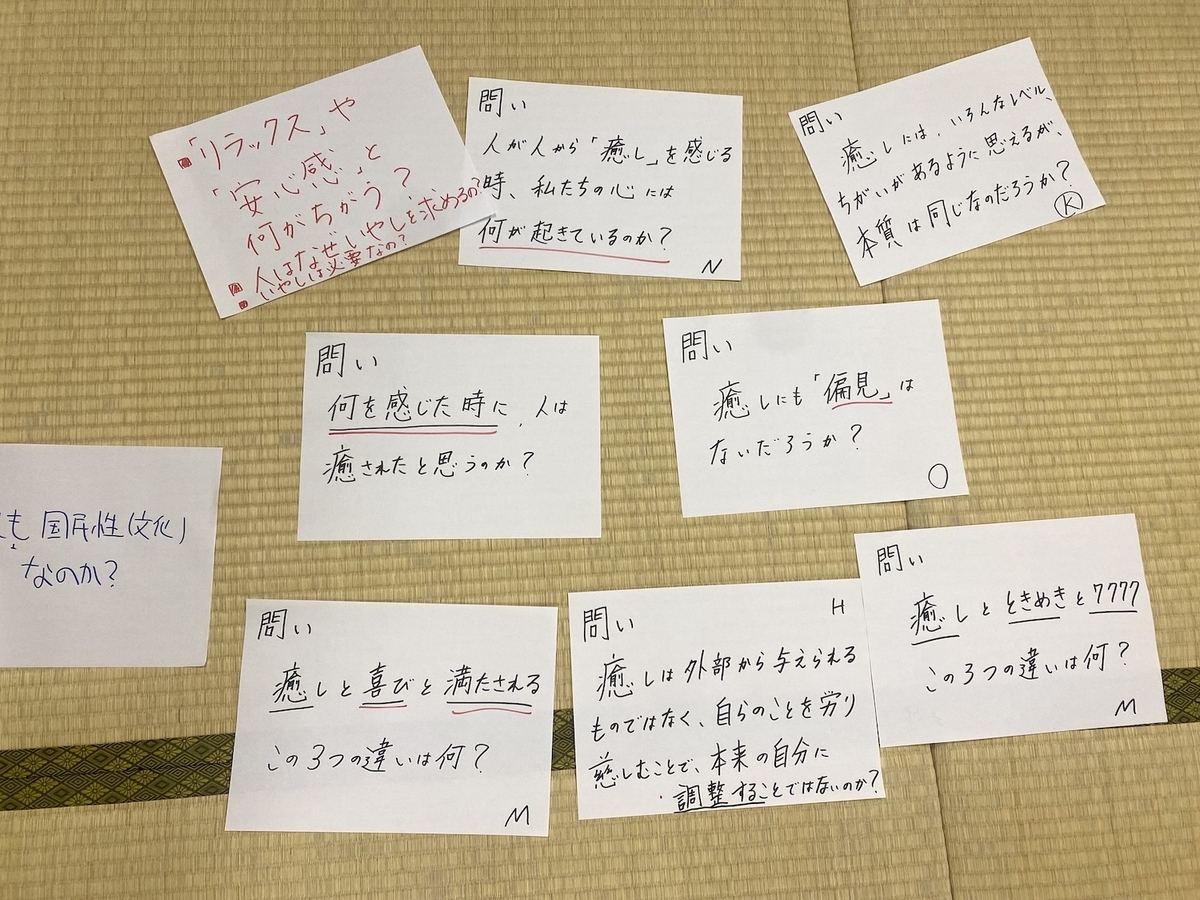 「リラックス」や
「安心感」と
何がちがう?
人はなぜいやしを求めるの?
いやしは必要なの?
問い
人が人から「癒し」を感じる
時、私たちの心には
何が起きているのか?
N
問い
癒しには、いろんなレベル、
ちがいがあるように思えるが、
本質は同じなのだろうか?
K
問い
何を感じた時に、人は
癒されたと思うのか?
問い
癒しにも「偏見」は
ないだろうか?
O
も国民性(文化)
なのか?
問い
癒しと喜びと満たされる
この3つの違いは何?
M
H
問い
癒しは外部から与えられる
ものではなく、自らのことを労り
慈しむことで、本来の自分に
調整することではないのか?
問い
癒しとときめきと7777
この3つの違いは何?
M